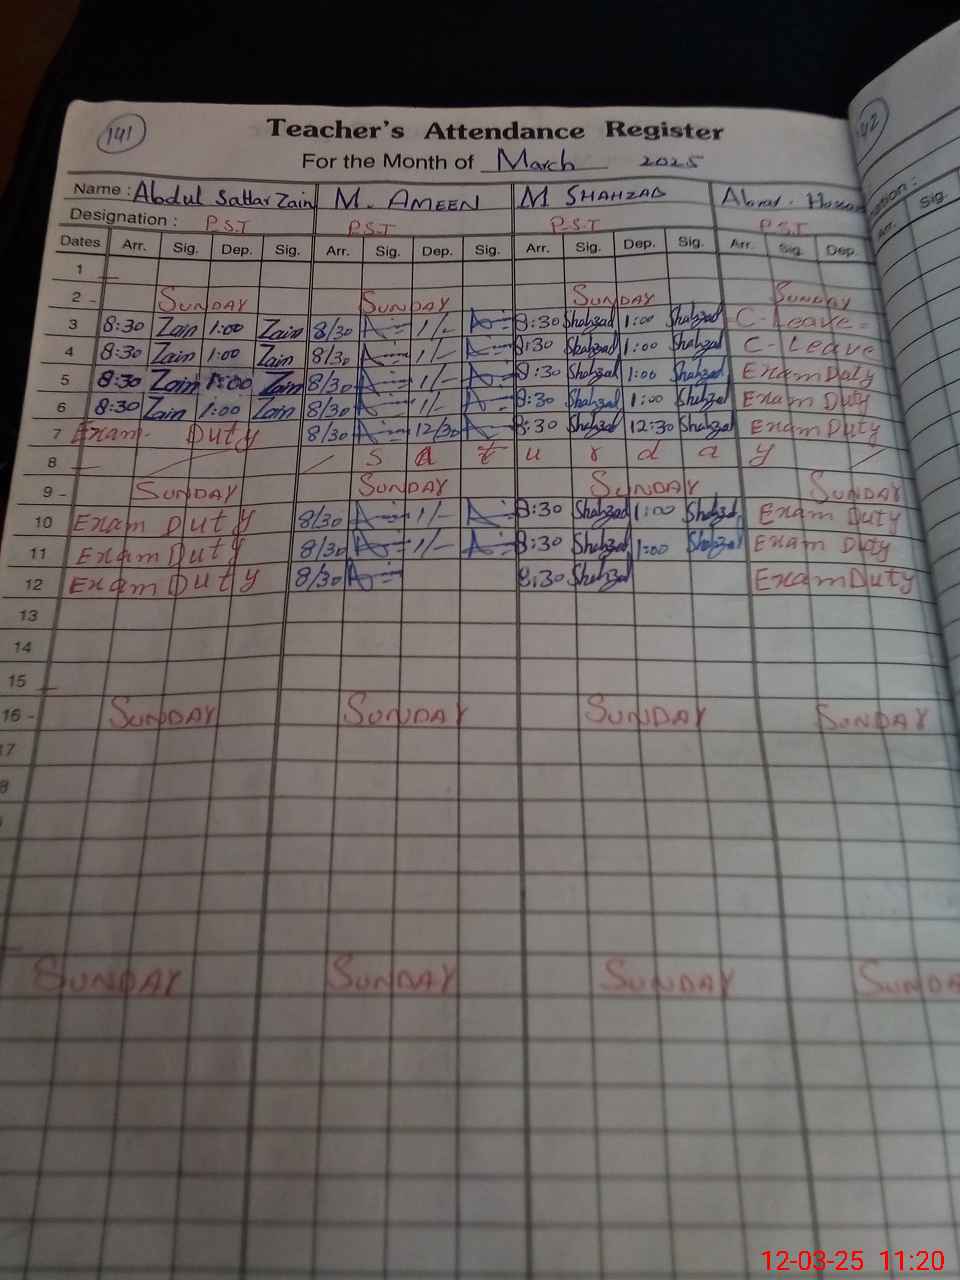 141
142
Teacher's Attendance Register
For the Month of March 2025
Name : Abdul Sattar Zain M. AMEEN M SHAHZAD Abrar
Designation : P.S.T P.S.T P.S.T P.S.T
Dates Arr. Sig. Dep. Sig. Arr. Sig. Dep. Sig. Arr. Sig. Dep. Sig. Arr. Sig. Dep. Arr. Sig.
1
2 - SUNDAY SUNDAY SUNDAY SUNDAY
3 8:30 Zain 1:00 Zain 8/30 1/- 8:30 Shahzad 1:00 Shahzad C-Leave
4 8:30 Zain 1:00 Zain 8/30 1/- 8:30 Shahzad 1:00 Shahzad C-Leave
5 8:30 Zain 1:00 Zain 8/30 1/- 8:30 Shahzad 1:00 Shahzad Exam Duty
6 8:30 Zain 1:00 Zain 8/30 1/- 8:30 Shahzad 1:00 Shahzad Exam Duty
7 Exam Duty 8/30 12/30 8:30 Shahzad 12:30 Shahzad Exam Duty
8 S a t u r d a y
9 - SUNDAY SUNDAY SUNDAY SUNDAY
10 Exam Duty 8/30 1/- 8:30 Shahzad 1:00 Shahzad Exam Duty
11 Exam Duty 8/30 1/- 8:30 Shahzad 1:00 Shahzad Exam Duty
12 Exam Duty 8/30 8:30 Shahzad Exam Duty
13
14
15
16 - SUNDAY SUNDAY SUNDAY SUNDAY
17
8
SUNDAY SUNDAY SUNDAY SUNDA
12-03-25 11:20